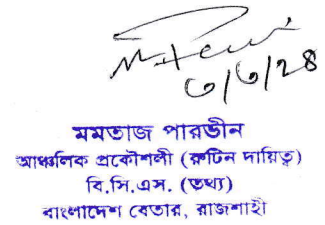 ৩/৩/২৪
মমতাজ পারভীন
আঞ্চলিক প্রকৌশলী (রুটিন দায়িত্ব)
বি.সি.এস. (তথ্য)
বাংলাদেশ বেতার, রাজশাহী